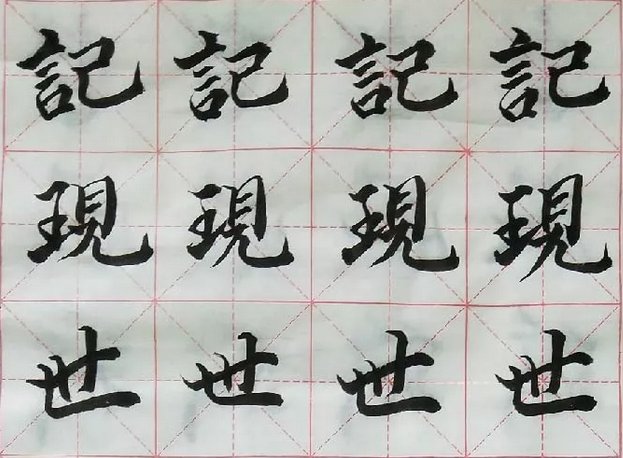 記記記記
現現現現
世世世世